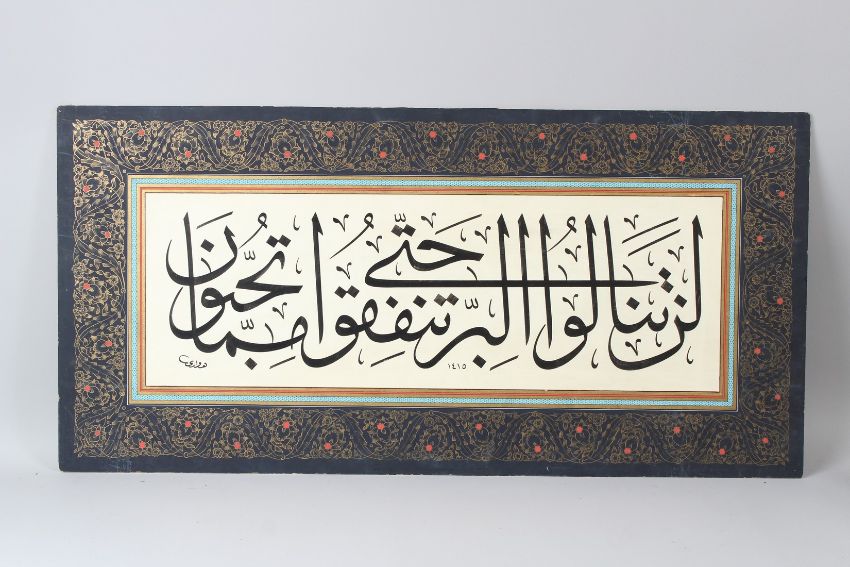 لَنْ تَنَالُوا الْبِرَّ حَتَّى تُنْفِقُوا مِمَّا تُحِبُّونَ
١٤١٥